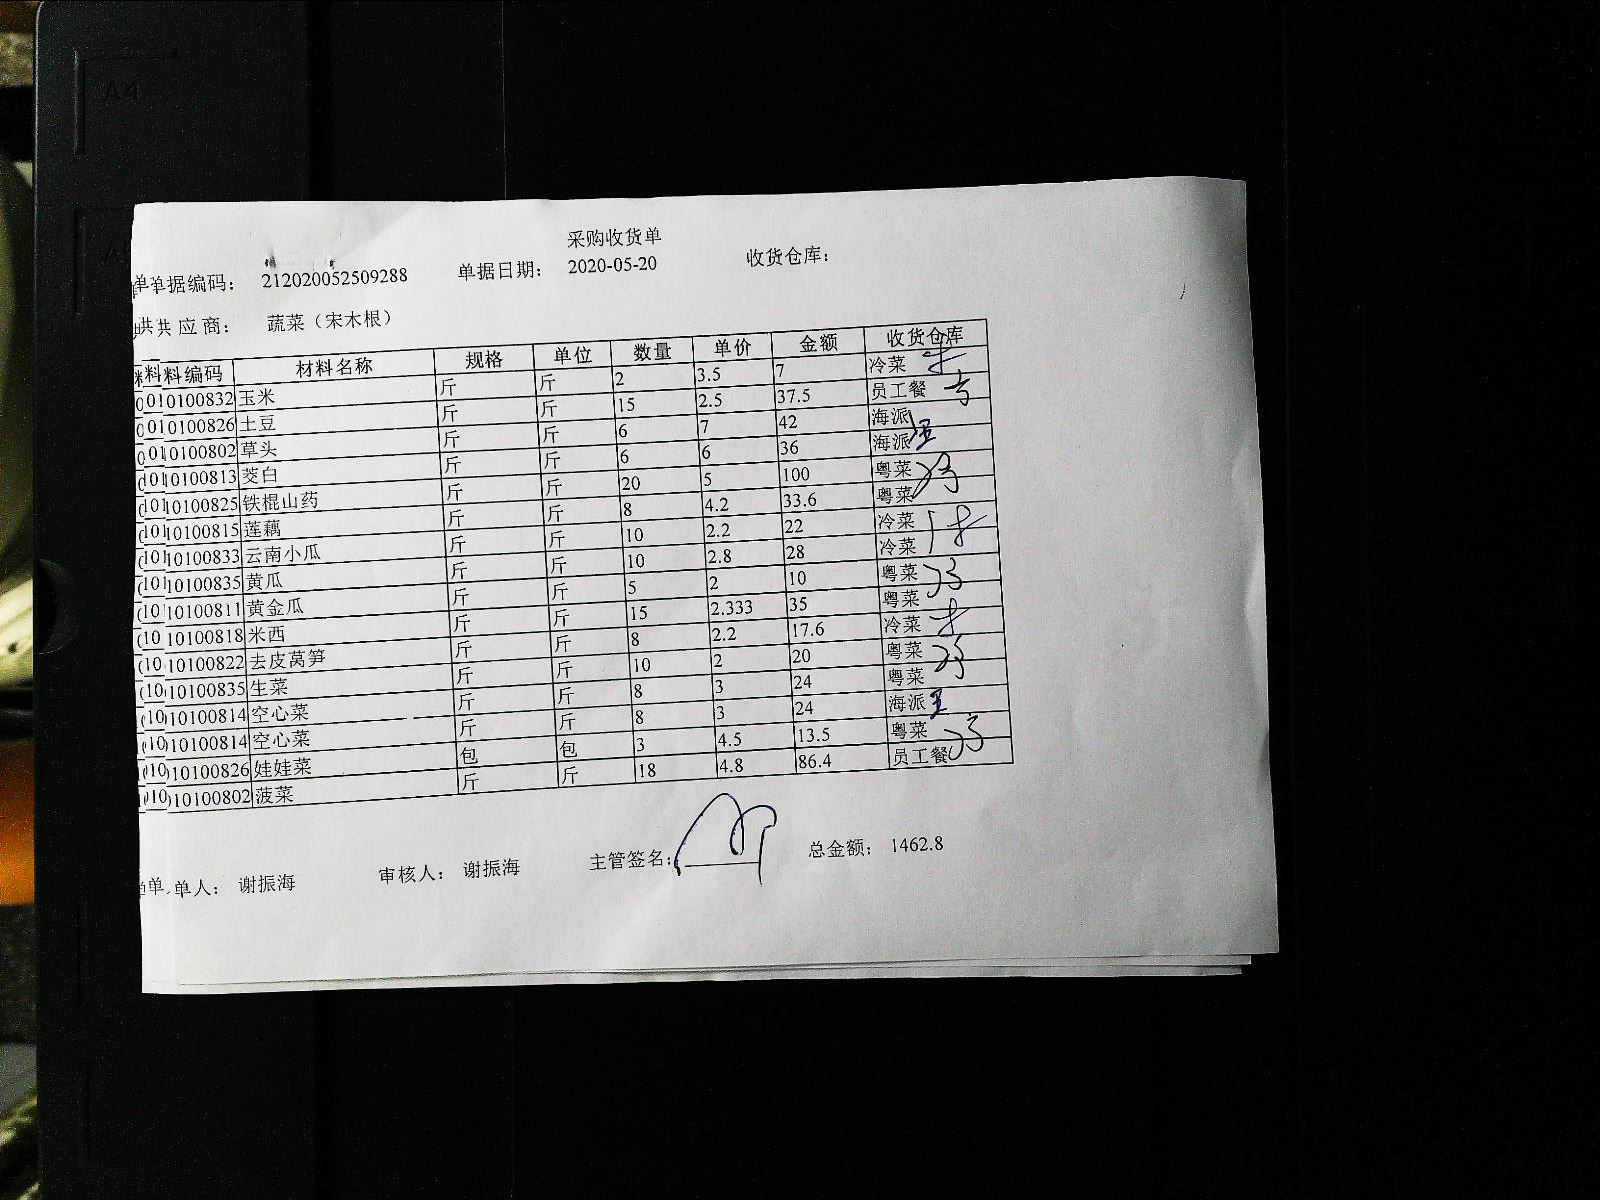 A4
采购收货单
单单据编码： 212020052509288 单据日期： 2020-05-20 收货仓库：
供共 应 商： 蔬菜（宋木根）
料料编码 材料名称 规格 单位 数量 单价 金额 收货仓库
0010100832 玉米 斤 斤 2 3.5 7 冷菜
0010100826 土豆 斤 斤 15 2.5 37.5 员工餐
0010100802 草头 斤 斤 6 7 42 海派
10100813 茭白 斤 斤 6 6 36 海派
10100825 铁棍山药 斤 斤 20 5 100 粤菜
10100815 莲藕 斤 斤 8 4.2 33.6 粤菜
10100833 云南小瓜 斤 斤 10 2.2 22 冷菜
10100835 黄瓜 斤 斤 10 2.8 28 冷菜
10100811 黄金瓜 斤 斤 5 2 10 粤菜
10100818 米西 斤 斤 15 2.333 35 粤菜
10100822 去皮莴笋 斤 斤 8 2.2 17.6 冷菜
10100835 生菜 斤 斤 10 2 20 粤菜
10100814 空心菜 斤 斤 8 3 24 粤菜
10100814 空心菜 斤 斤 8 3 24 海派
10100826 娃娃菜 包 包 3 4.5 13.5 粤菜
10100802 菠菜 斤 斤 18 4.8 86.4 员工餐
单单人： 谢振海 审核人： 谢振海 主管签名： 总金额： 1462.8